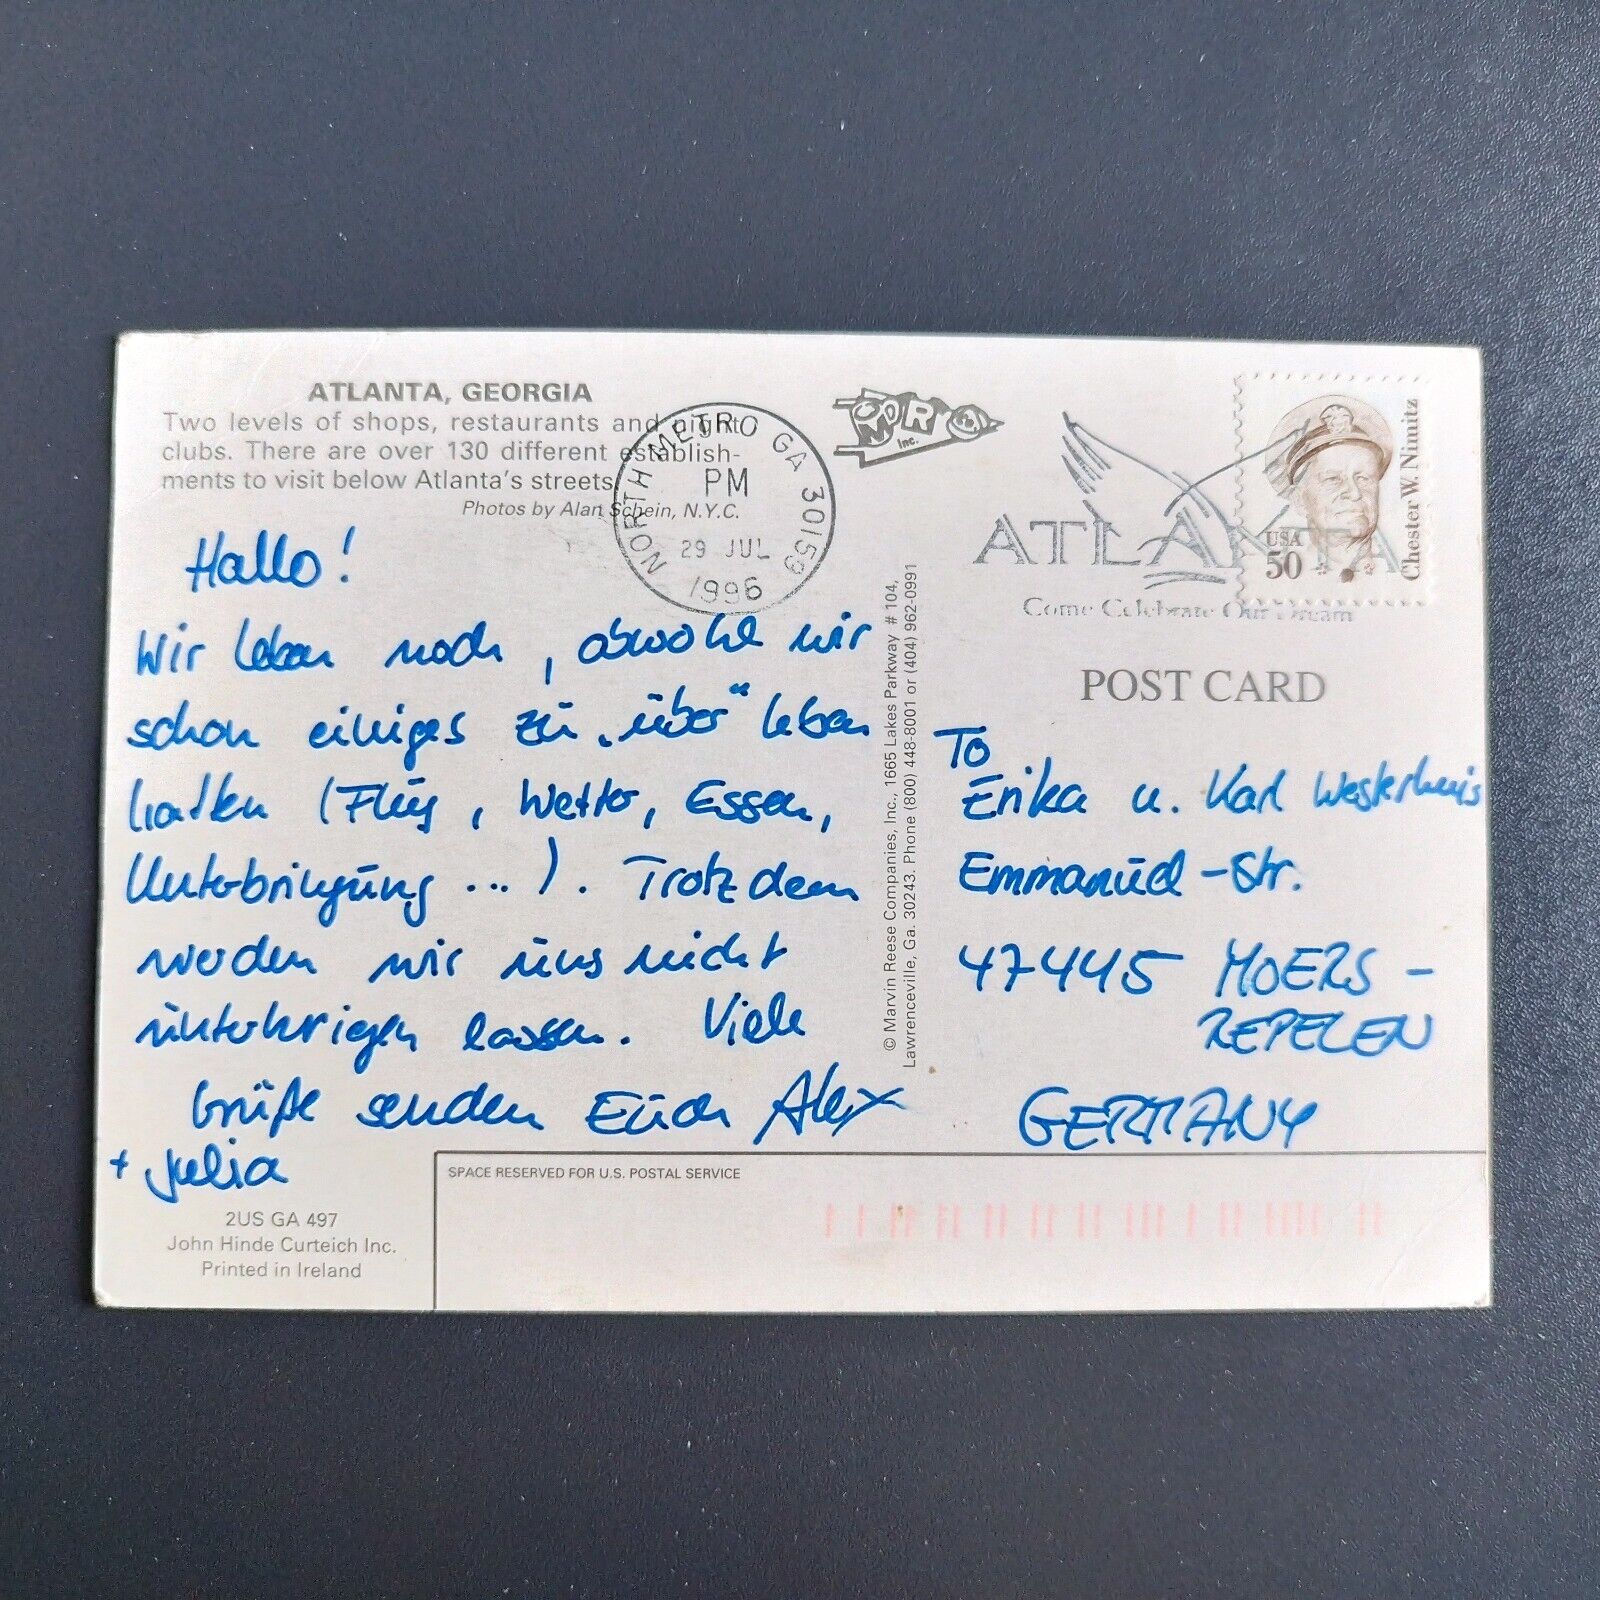 ATLANTA, GEORGIA
Two levels of shops, restaurants and night
clubs. There are over 130 different establish-
ments to visit below Atlanta's streets.
Photos by Alan Schein, N.Y.C.
Hallo!
Wir leben noch, obwohl wir
schon einiges zu „über“ leben
hatten (Flug, Wetter, Essen,
Unterbringung ...). Trotzdem
werden wir uns nicht
unterkriegen lassen. Viele
Grüße senden Euch Alex
+ Julia
2US GA 497
John Hinde Curteich Inc.
Printed in Ireland
NORTH METRO GA 30159
PM
29 JUL
1996
Inc.
© Marvin Reese Companies, Inc., 1665 Lakes Parkway # 104,
Lawrenceville, Ga. 30243. Phone (800) 448-8001 or (404) 962-0991
ATLANTA
Come Celebrate Our Dream
USA
50
Chester W. Nimitz
POST CARD
To
Erika u. Karl Westerhuis
Emmanuel-Str.
47445 MOERS-
REPELEN
GERMANY
SPACE RESERVED FOR U.S. POSTAL SERVICE